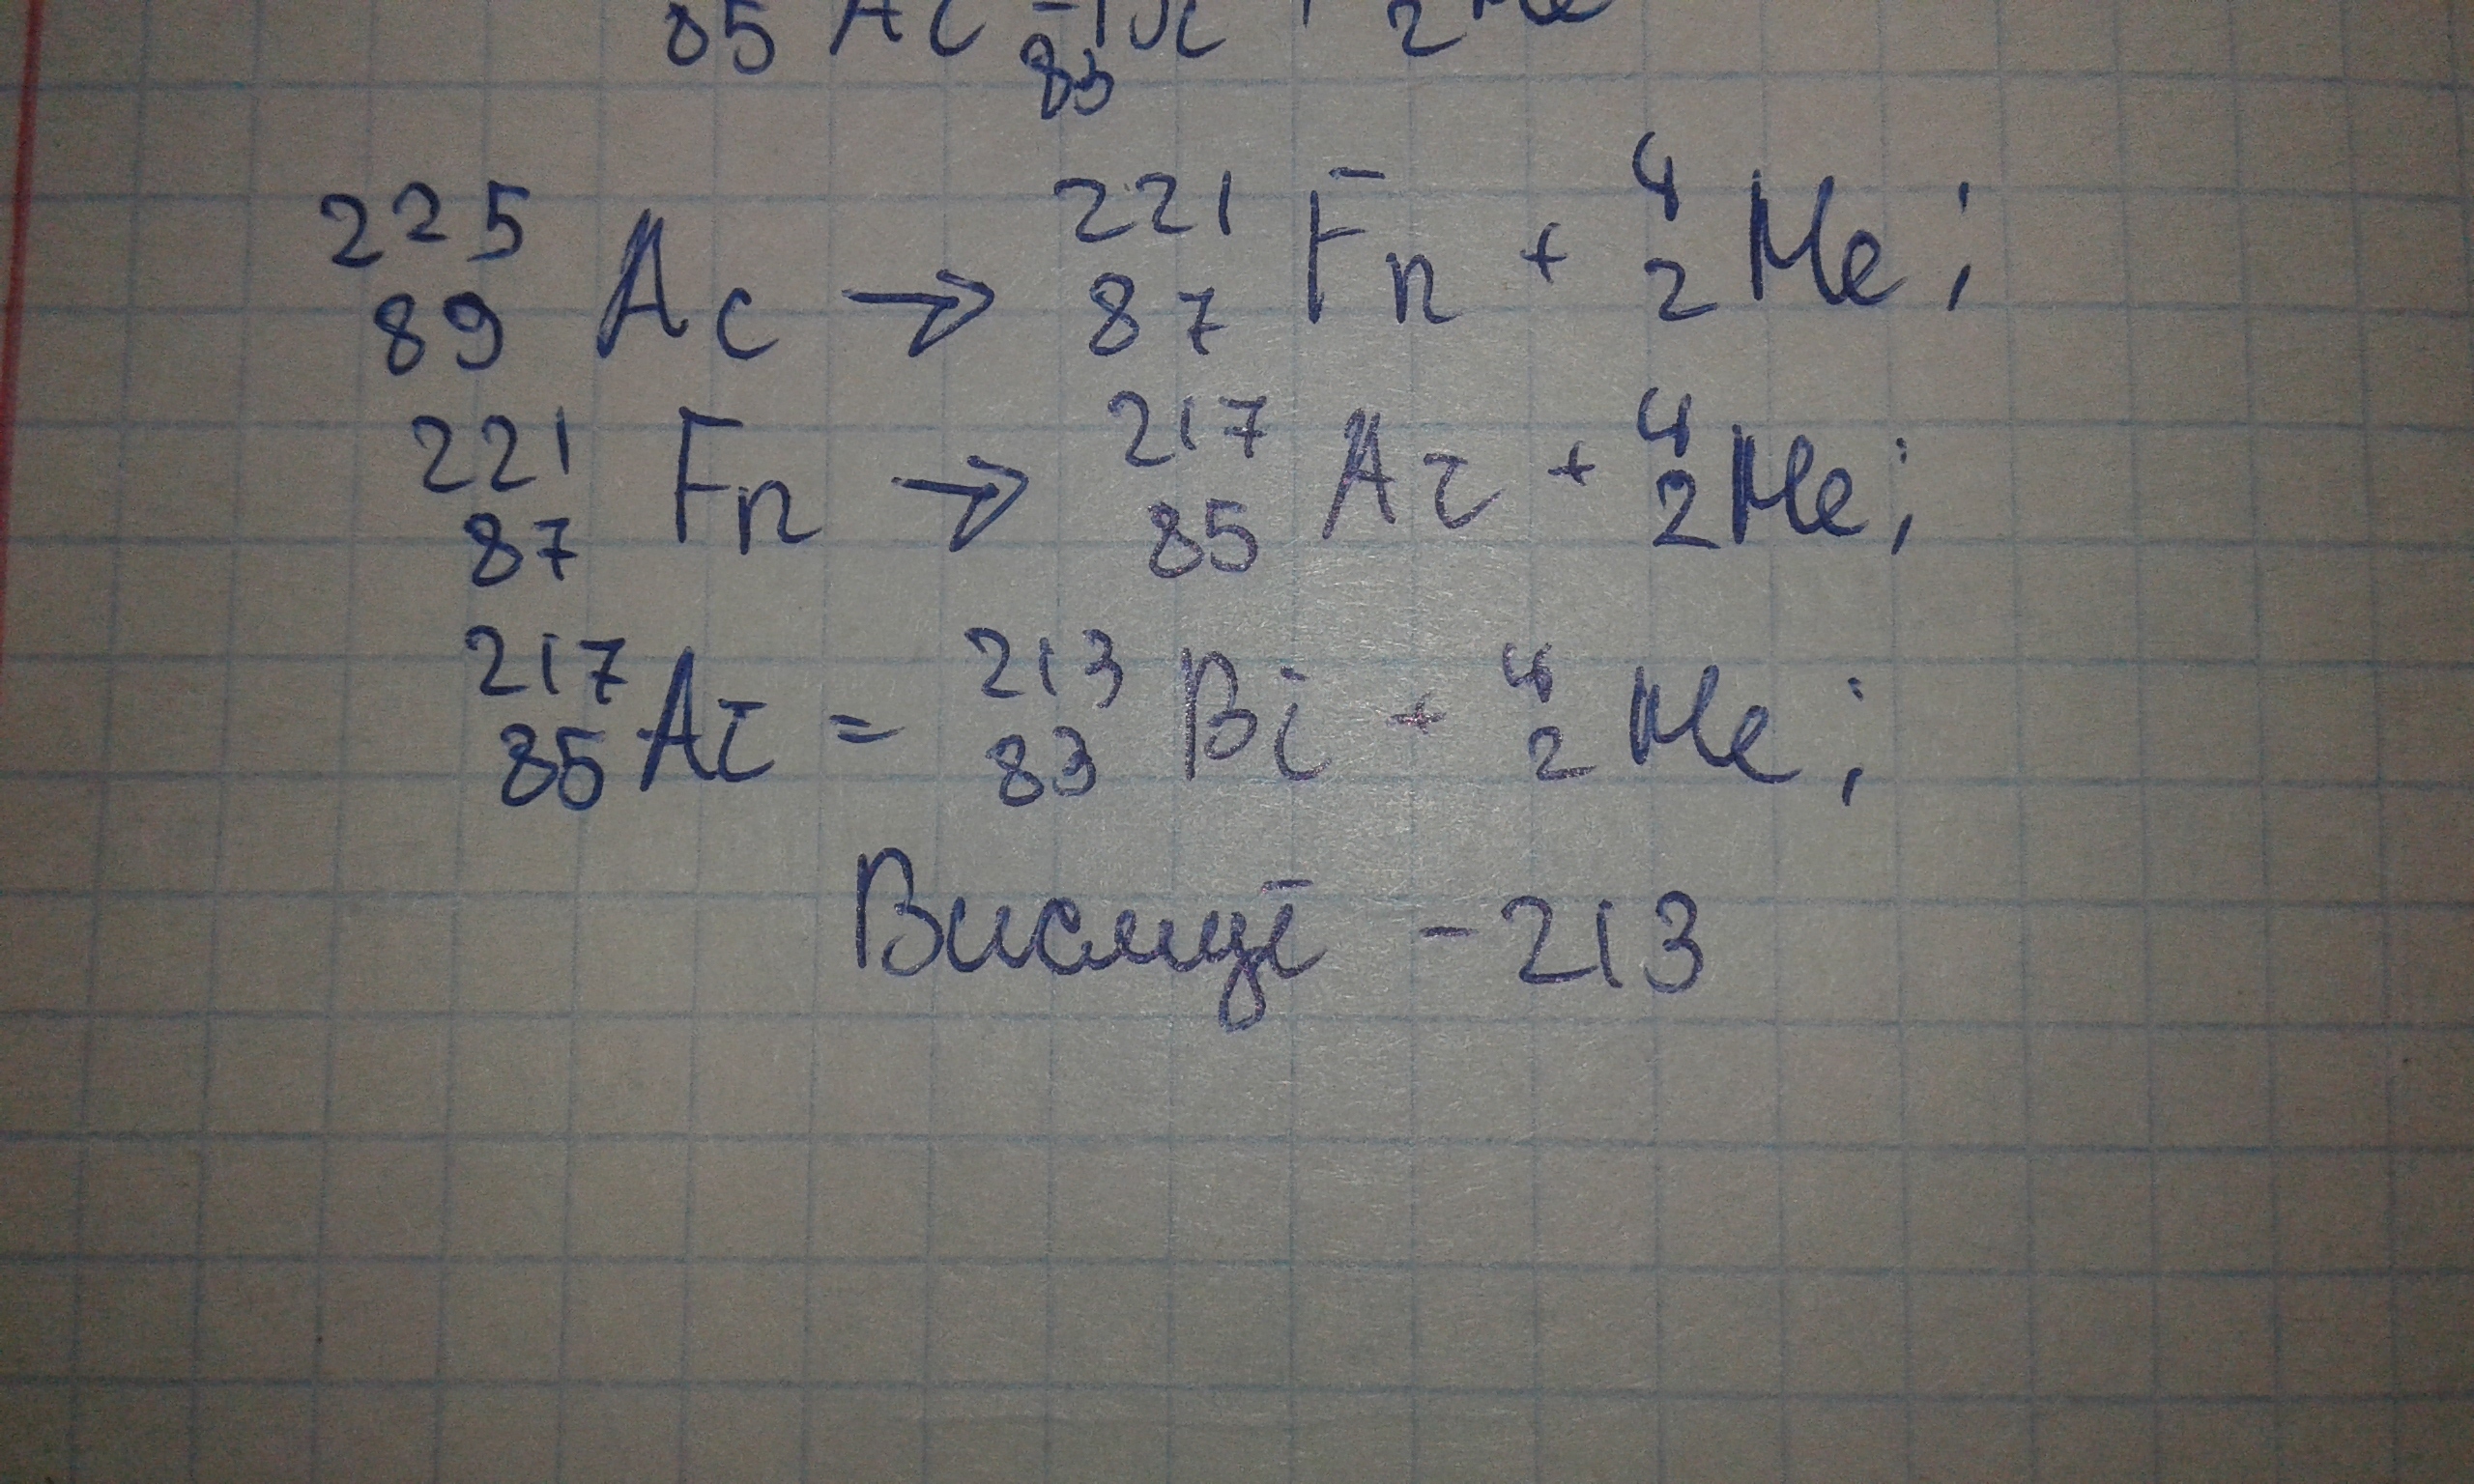 85 Ac 83 2
225 89 Ac → 221 87 Fr + 4 2 He;
221 87 Fr → 217 85 At + 4 2 He;
217 85 At = 213 83 Bi + 4 2 He;
Висмут - 213